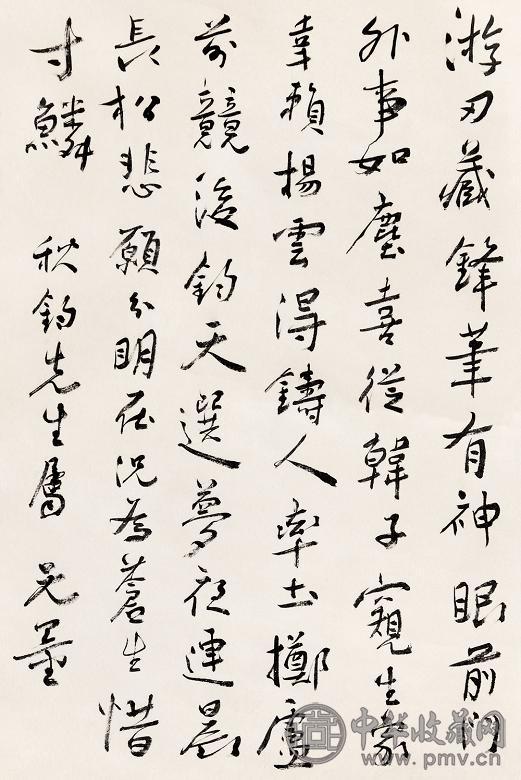 游刃藏鋒筆有神眼前門
外事如塵喜從韓子窺生
幸賴揚雲得鑄人率土擲盧
競後鈞天選夢夜連晨
長松悲願分明在況為蒼生惜
寸鱗 秋鈞先生屬
中华收藏网
www.pmv.cn